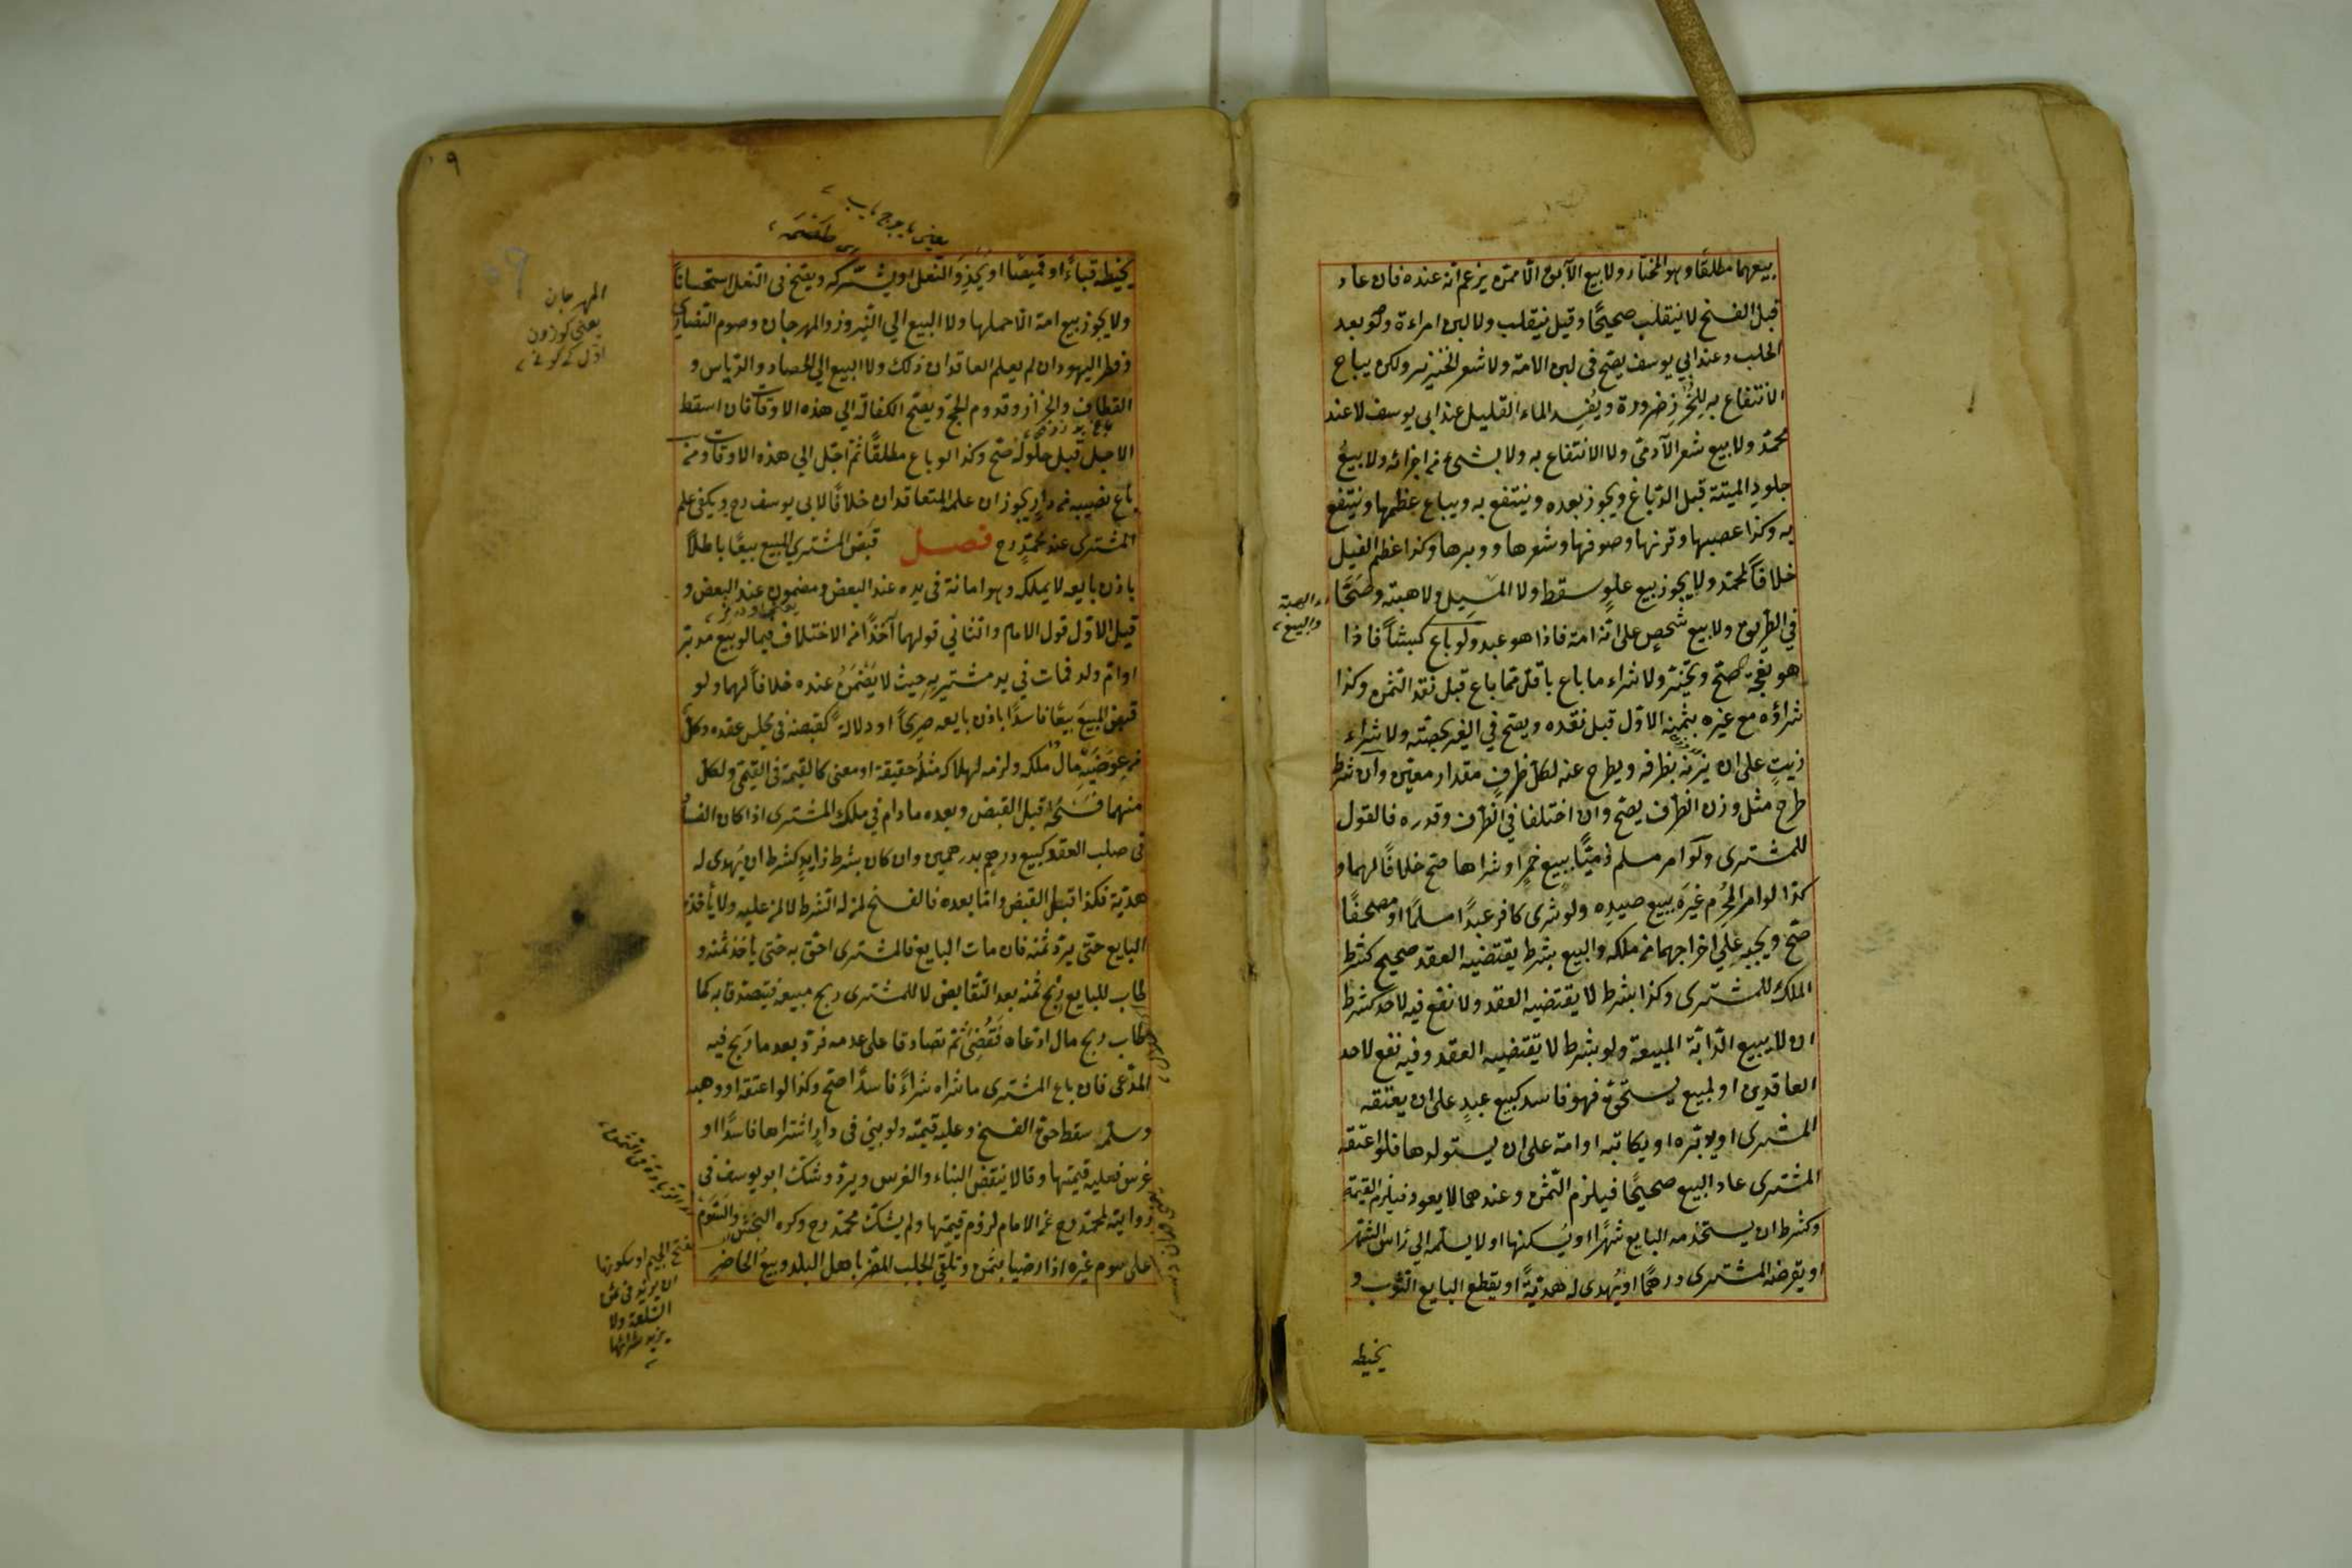 بيعهما مطلقًا وهو المختار ولا بيع الآبق الّا ممّن يزعم انّه عنده فان عاد
قبل الفسخ لا ينقلب صحيحًا وقيل ينقلب ولا لبن امراءة وهو بعد
الحلب وعند ابي يوسف يصحّ في لبن الامة ولا شعر الخنزير ولكن يباح
الانتفاع به للخُرز ضرورة ويُفسِد الماء القليل عند ابي يوسف لا عند
محمّد ولا بيع شعر الآدمي ولا الانتفاع به ولا بشيء من اجزائه ولا بيعُ
جلود الميتة قبل الدّباغ ويجوز بعده وينتفع به ويباع عظمها وينتفع
به وكذا عصبها وقرنها وصوفها وشعرها ووبرها وكذا عظم الفيل
خلافًا لمحمّد ولا يجوز بيع علوٍ سقط ولا المَسِيل ولا هبته وصَحَّا
في الطّريق ولا بيع شخصٍ على انّه امة فاذا هو عبد ولو باع كبشًا فاذا
هو نعجة صحّ ويخيّر ولا شراء ما باع باقلّ ممّا باع قبل نقد الثمن وكذا
شراؤه مع غيره بثمنه الاوّل قبل نقده ويصحّ في الغير بحصّته ولا شراء
زيتٍ على ان يزنه بظرفه ويطرح عنه لكلّ ظرفٍ مقدار معيّن وان شرط
طرح مثل وزن الظرف يصحّ وان اختلفا في الظرف وقدره فالقول
للمشترى ولو امر مسلم ذميًّا ببيع خمرٍ او شراها صحّ خلافًا لهما و
كذا لو امر المُحرِم غيرَه ببيع صيده ولو شرى كافر عبدًا مسلمًا او مصحفًا
صحّ ويجبر على اخراجهما من ملكه والبيع بشرط يقتضيه العقد صحيح كشرط
الملك للمشترى وكذا بشرط لا يقتضيه العقد ولا نفع فيه لاحد كشرط
ان لا يبيع الدّابّة المبيعة ولو بشرط لا يقتضيه العقد وفيه نفع لاحد
العاقدين او لمبيع يستحقّ فهو فاسد كبيع عبدٍ على ان يعتقه
المشترى او يدبّره او يكاتبه او امة على ان يستولدها فلو اعتقه
المشترى عاد البيع صحيحًا فيلزم الثّمن وعندهما لا يعود فيلزم القيمة
وكشرط ان يستخدمه البايع شهرًا او يُسكنها او لا يسلّمه الى رأس الشهر
او يقرضه المشترى درهمًا او يُهدى له هديّةً او يقطع البايع الثوب و
يخيطه
الهبة
والبيع
يخيطه قباءً او قميصًا او يحذو النّعل او يشرّكه ويصحّ في النعل استحسانًا
ولا يجوز بيع امة الّا حملها ولا البيع الي النّيروز والمهرجان وصوم النصارى
وفطر اليهود ان لم يعلم العاقدان ذلك ولا البيع الي الحصاد والدّياس و
القطاف والجزاز وقدوم الحجّ ويصحّ الكفالة الي هذه الاوقات فان اسقط
الاجل قبل حلوله صحّ وكذا لو باع مطلقًا ثمّ اجّل الي هذه الاوقات ومن
باع نصيبه من دارٍ يجوز ان علمه المتعاقدان خلافًا لابي يوسف رح ويكفى علم
المشترى عند محمّدٍ رح فصل قبَض المشترى المبيع بيعًا باطلًا
باذن بايعه لا يملكه وهو امانة في يده عند البعض ومضمون عند البعض و
قيل الاوّل قول الامام والثاني قولهما آخذًا من الاختلاف فيما لو بيع مدبّر
او امّ ولد فمات في يد مشتريه حيث لا يَضْمَنُ عنده خلافًا لهما ولو
قبض المبيعَ بيعًا فاسدًا باذن بايعه صريحًا او دلالةً كقبضه في مجلس عقده وكلّ
من عِوَضَيه مال ملكه ولزمه لهلاكه مثلُه حقيقة او معنى كالقيمة في القيمى ولكلّ
منهما فسخُه قبل القبض وبعده ما دام في ملك المشترى اذا كان الفساد
في صلب العقد كبيع درهم بدرهمين وان كان بشرط زايدٍ كشرط ان يُهدى له
هديّة فكذا قبل القبض وامّا بعده فالفسخ لمن له الشرط لا لمن عليه ولا يأخذه
البايع حتى يردّ ثمنه فان مات البايع فالمشترى احقّ به حتى يأخذ ثمنه و
طاب للبايع ربْح ثمنه بعد التّقابض لا للمشترى ربح مبيعه فيتصدّق به كما
طاب ربح مال ادّعاه فقُضِىَ ثمّ تصادقا على عدمه فردّ بعد ما رَبح فيه
المدّعى فان باع المشترى ما شراه شراءً فاسدًا صحّ وكذا لو اعتقه او وهبه
وسلّمه سقط حقّ الفسخ وعليه قيمته ولو بنى في دارٍ اشتراها فاسدًا او
غرس فعليه قيمتها وقالا ينقض البناء والغرس ويردّ وشكّ ابو يوسف في
روايته لمحمّد رح عن الامام لزوم قيمتها ولم يشكّ محمّد رح وكره النّجَش والسّوم
على سوم غيره اذا رضيا بثمن وتلقّي الجلب المضرّ باهل البلد وبيعُ الحاضر
المهرجان
يعنى
بفتح الجيم او سكونها
ان يزيد في ثمن
السّلعة ولا
يريد شرائها